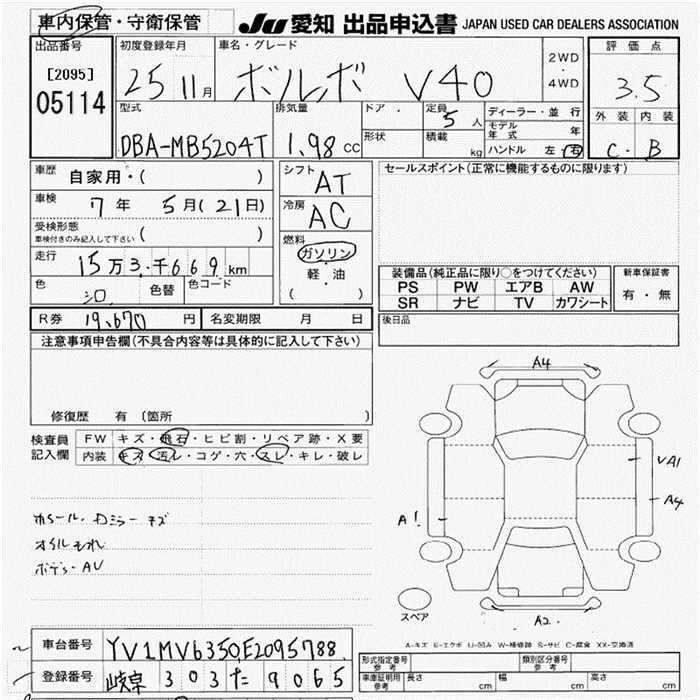 車内保管・守衛保管
JU 愛知 出品申込書 JAPAN USED CAR DEALERS ASSOCIATION
出品番号 初度登録年月 車名・グレード 2WD・4WD 評価点
[2095]
05114 25 11月 ボルボ V40 3.5
型式 排気量 ドア・ 定員 5人 ディーラー・並行 外装 内装
モデル年式 年
DBA-MB5204T 1.98 CC 形状 積載 kg ハンドル 左・右 C・B
車歴 自家用・( ) シフト AT セールスポイント(正常に機能するものに限ります)
車検 7年 5月(21日) 冷房 AC
受検形態
車検付きのみ記入して下さい ( )
走行 15万3千669km 燃料 ガソリン 軽・油 ( )
色 シロ 色替 色コード
装備品(純正品に限り○をつけてください) 新車保証書
PS PW エアB AW 有・無
SR ナビ TV カワシート
R券 19,670円 名変期限 月 日 後日品
注意事項申告欄(不具合内容等は具体的に記入して下さい)
修復歴 有 (箇所 )
検査員記入欄 FW キズ・飛石・ヒビ割・リペア跡・X要
内装 キズ・汚レ・コゲ・穴・スレ・キレ・破レ
A4
VA1
A4
A1
A2
ホイール・Dミラーキズ
オイルもれ
ボデーAU
スペア
A-キズ E-エクボ U-凹み W-補修跡 S-サビ C-腐食 XX-交換済
車台番号 YV1MV6350E2095788
登録番号 岐阜 303 た 9065
形式指定番号 参考 類別区分番号 参考
車庫証明用 参考 長さ cm 幅 cm 高さ cm